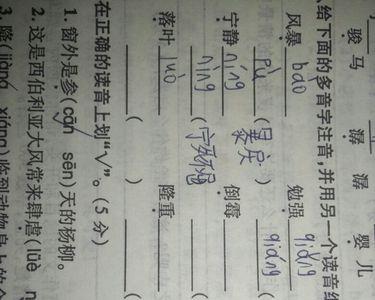 骏马 潺潺 婴儿
给下面的多音字注音,并用另一个读音组
风暴 bào 勉强 qiǎng
pù ( 暴庆 ) qiáng (
宁静 níng 倒霉
nìng ( 宁死不屈
落叶 luò 隆重
( ) (
在正确的读音上划“√”。(5分)
1. 窗外是参(cān sēn)天的杨柳。
2. 这是西伯利亚大风常来肆虐(lüè n
3. 降(jiàng xiáng)临到动物身上的